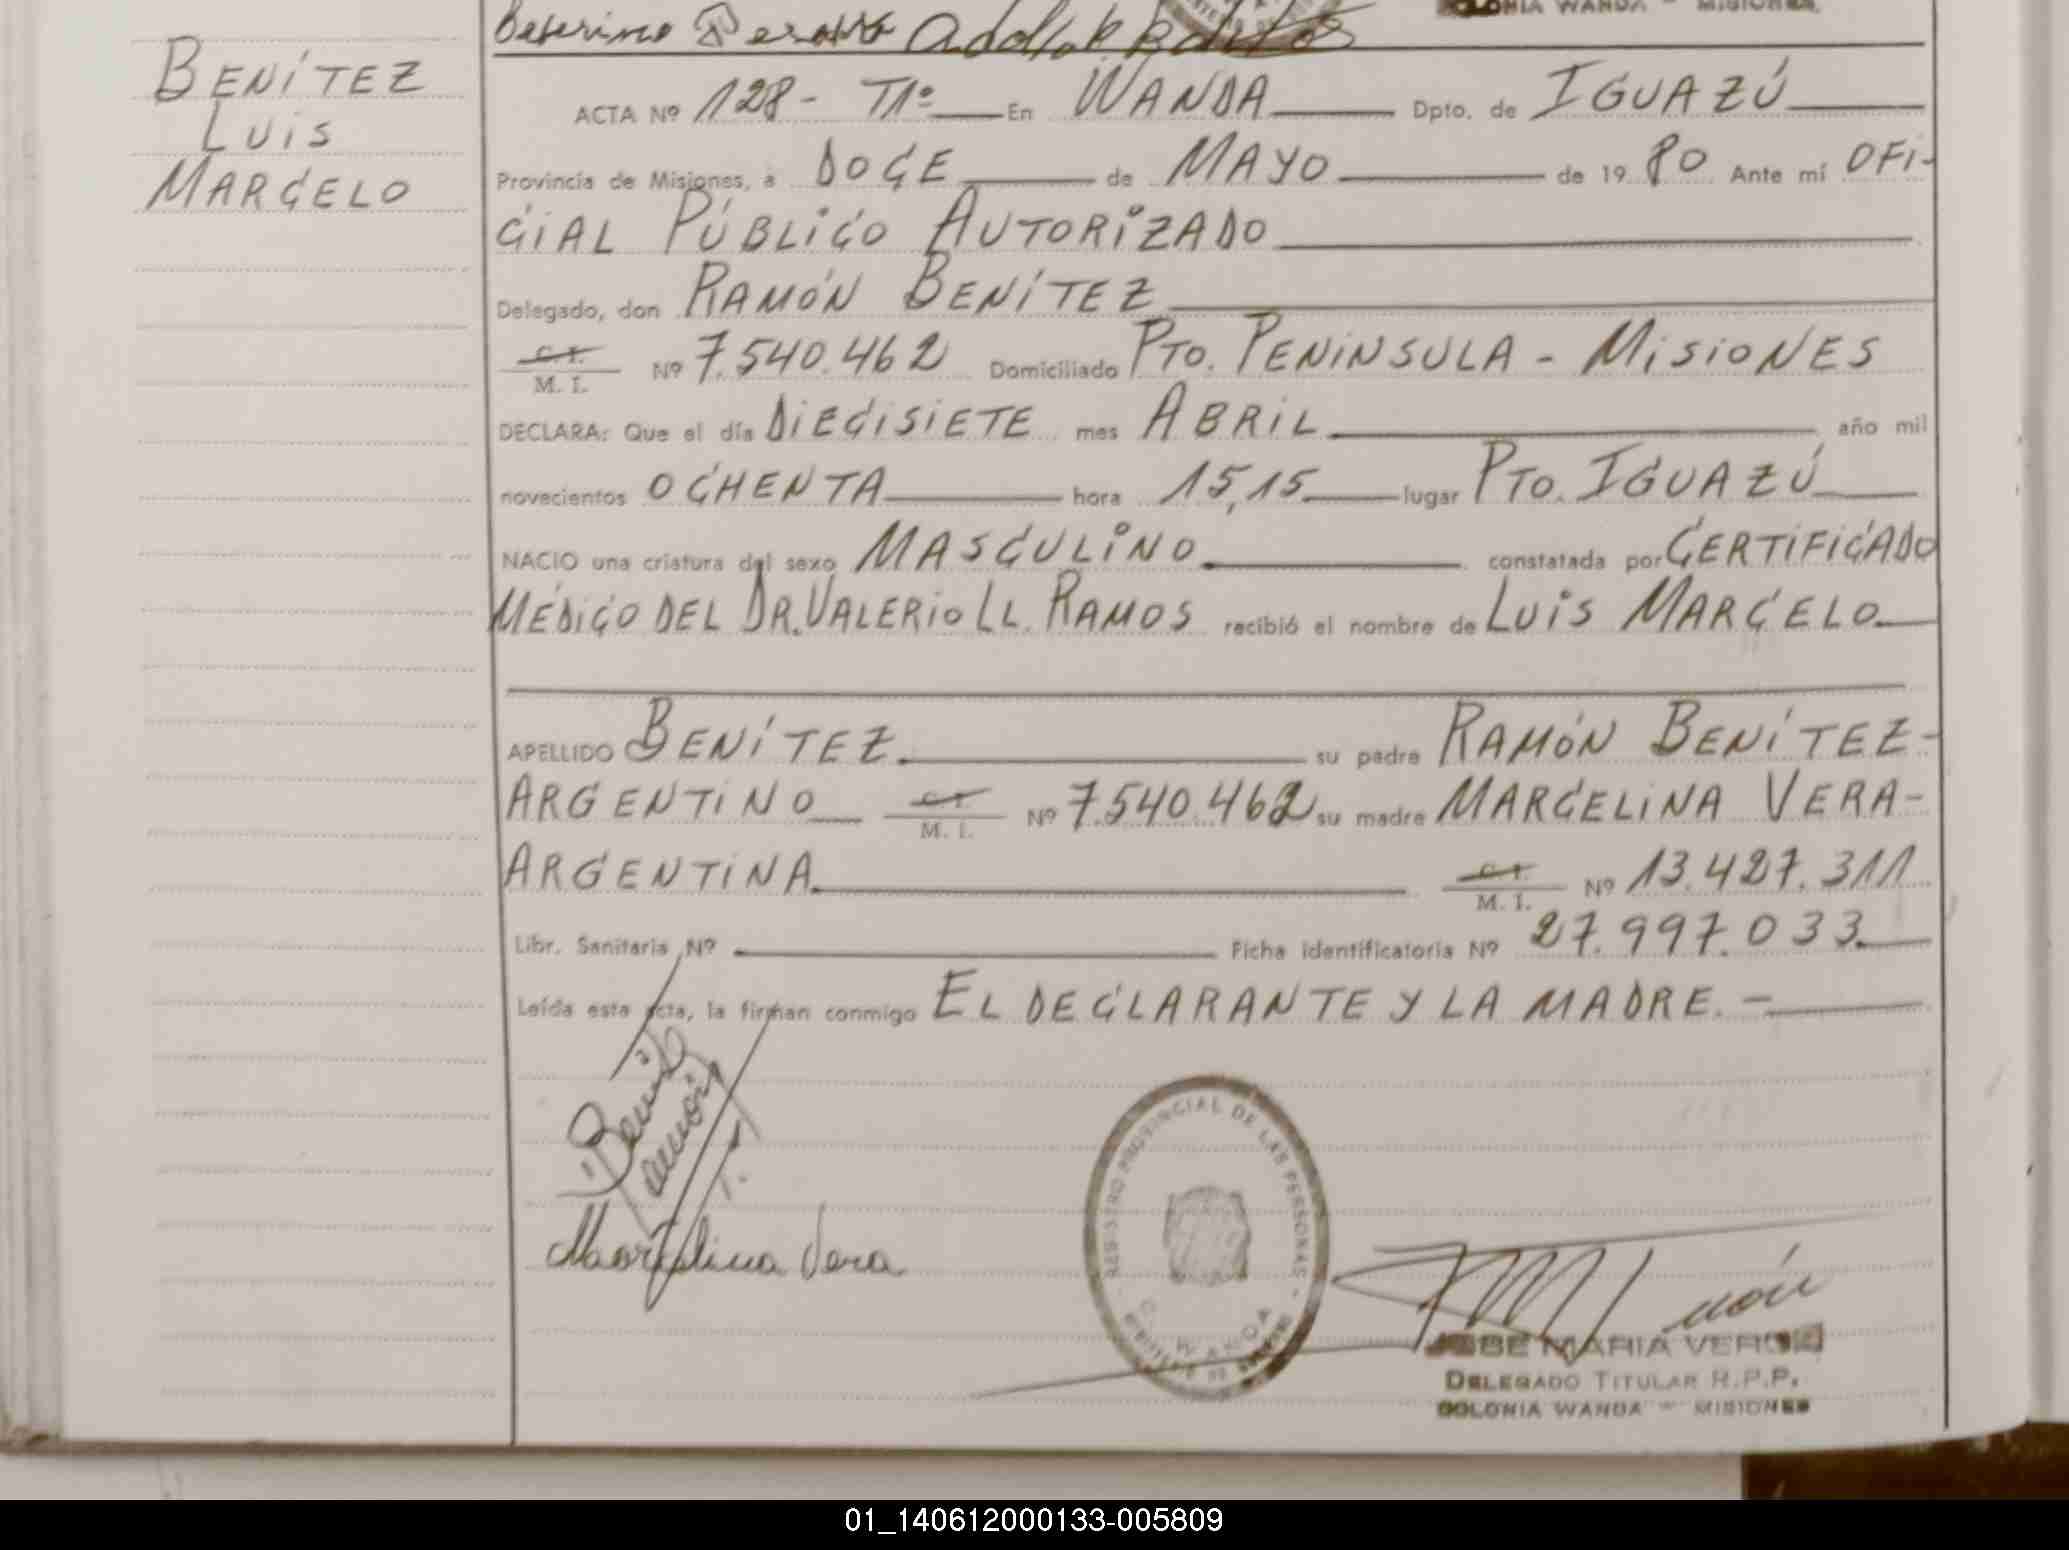 COLONIA WANDA - MISIONES.
BENÍTEZ
LUIS
MARCELO
ACTA Nº 128- T1º En WANDA Dpto. de IGUAZÚ
Provincia de Misiones, a DOCE de MAYO de 1980 Ante mí OFI-
CIAL PÚBLICO AUTORIZADO
Delegado, don RAMÓN BENÍTEZ
C.I. M. I. Nº 7.540.462 Domiciliado PTO. PENINSULA - MISIONES
DECLARA: Que el día DIECISIETE mes ABRIL año mil
novecientos OCHENTA hora 15,15 lugar PTO. IGUAZÚ
NACIO una criatura del sexo MASCULINO constatada por CERTIFICADO
MÉDICO DEL DR. VALERIO LL. RAMOS recibió el nombre de LUIS MARCELO
APELLIDO BENÍTEZ su padre RAMÓN BENÍTEZ-
ARGENTINO C.I. M. I. Nº 7.540.462 su madre MARCELINA VERA-
ARGENTINA C.I. M. I. Nº 13.427.311
Libr. Sanitaria Nº Ficha identificatoria Nº 27.997.033
Leída esta acta, la firman conmigo EL DECLARANTE Y LA MADRE.-
Benitez
Ramón
Marcelina Vera
REGISTRO PROVINCIAL DE LAS PERSONAS
C. WANDA
JOSE MARIA
DELEGADO TITULAR R.P.P.
COLONIA WANDA - MISIONES
01_140612000133-005809